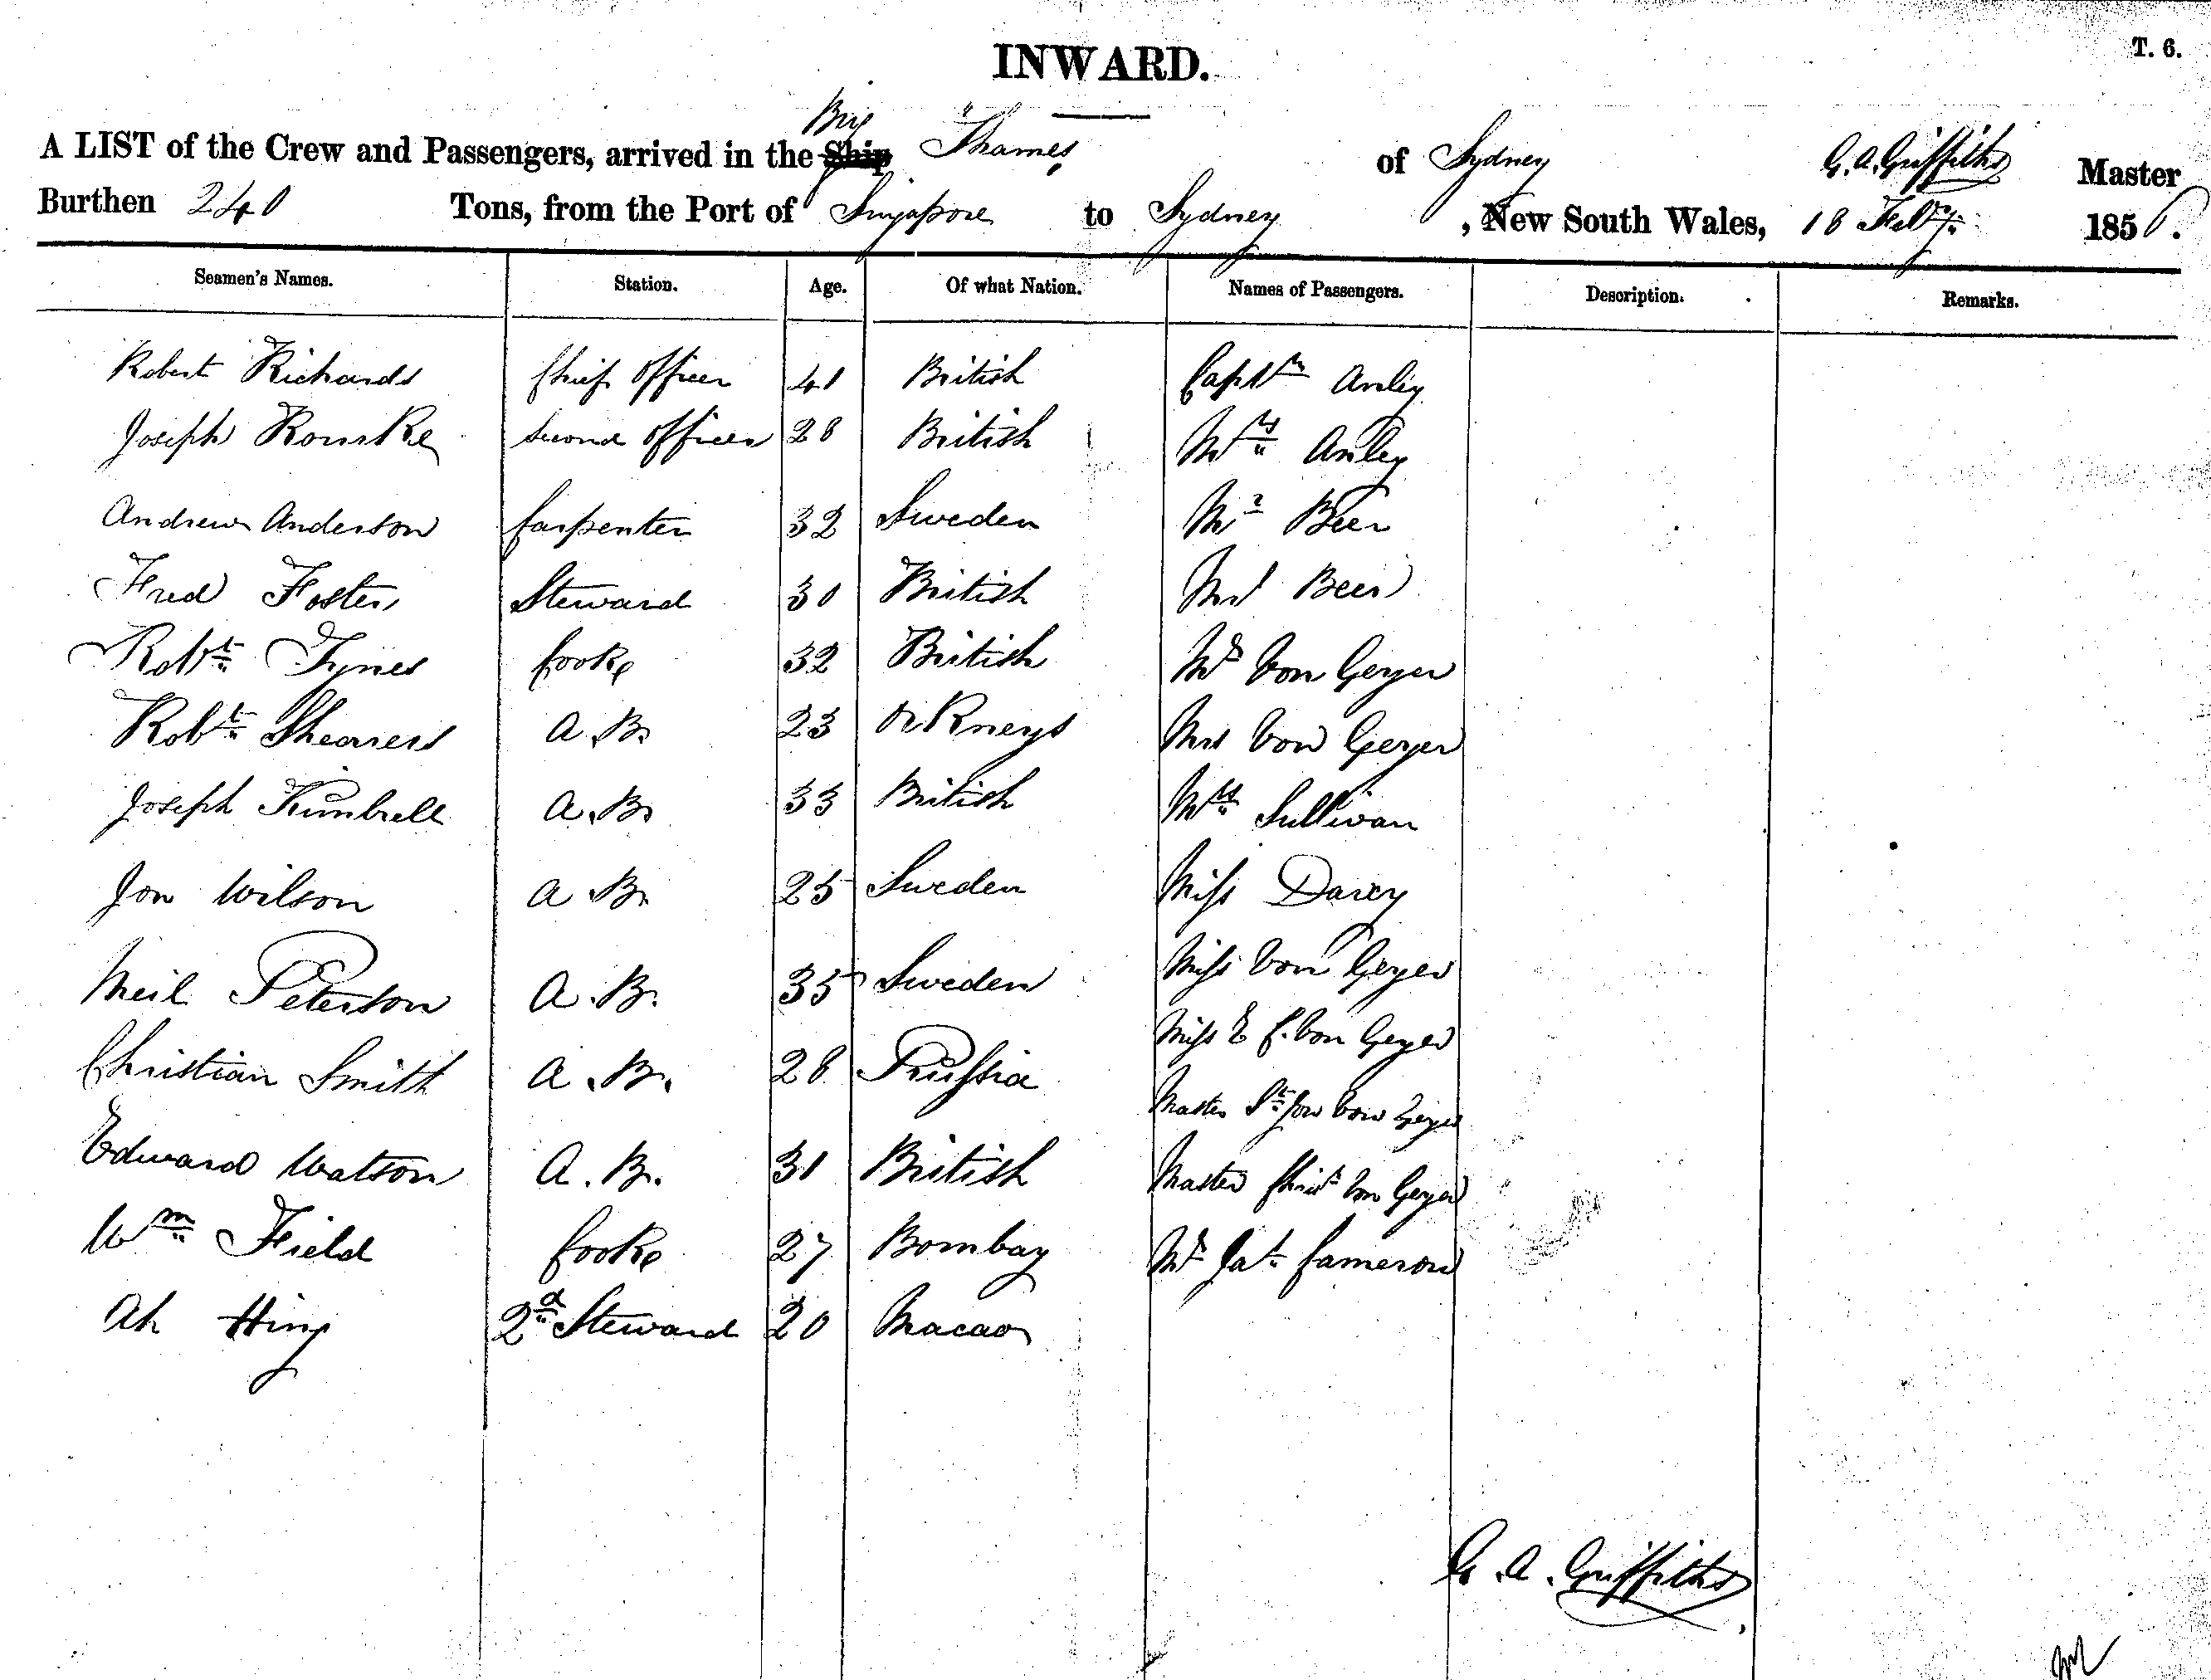 INWARD.
T. 6.
Brig
A LIST of the Crew and Passengers, arrived in the Ship Thames of Sydney G. A. Griffiths Master
Burthen 240 Tons, from the Port of Singapore to Sydney, New South Wales, 18 Feby. 1856.
Seamen's Names. Station. Age. Of what Nation. Names of Passengers. Description. Remarks.
Robert Richards Chief Officer 41 British Captn Anley
Joseph Rourke Second Officer 28 British Mrs Anley
Andrew Anderson Carpenter 32 Sweden Mr Beer
Fred Foster Steward 30 British Mrs Beer
Robt Tynes Cooke 32 British Mr Von Geyer
Robt Shearers A.B. 23 Orkneys Mrs Von Geyer
Joseph Kimbrell A.B. 33 British Mrs Sullivan
Jon Wilson A B. 25 Sweden Miss Darcy
Neil Peterson A.B. 35 Sweden Miss Von Geyer
Miss E C. Von Geyer
Christian Smith A.B. 28 Prussia Master St Jon Von Geyer
Edward Watson A.B. 31 British Master Christ Von Geyer
Wm Field Cooke 27 Bombay Mr Jas Cameron
Ah Hing 2d Steward 20 Macao
G. A. Griffiths